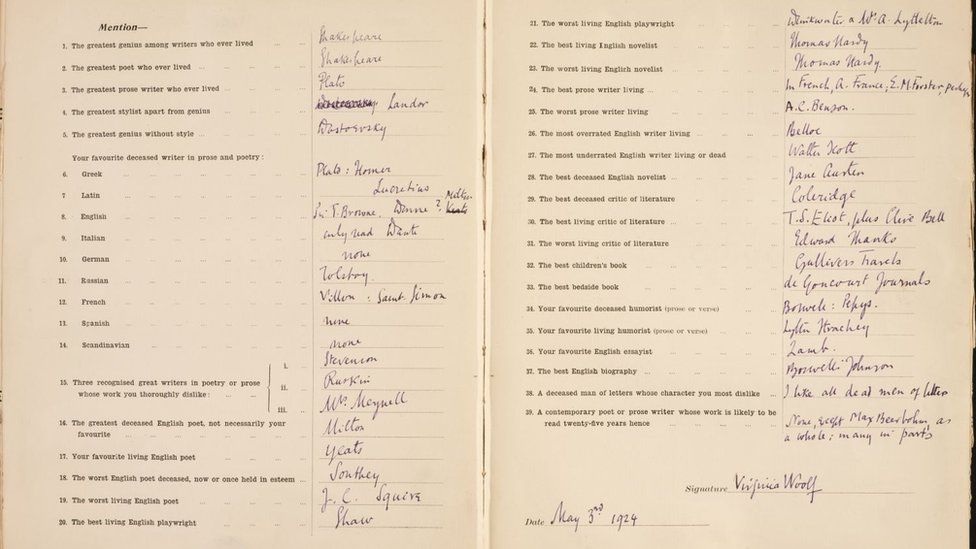 Mention—
1. The greatest genius among writers who ever lived ... ... Shakespeare
2. The greatest poet who ever lived ... Shakespeare
3. The greatest prose writer who ever lived ... Plato
4. The greatest stylist apart from genius Landor
5. The greatest genius without style ... Dostoevsky
Your favourite deceased writer in prose and poetry :
6. Greek Plato : Homer
7 Latin Lucretius
8. English Sir T. Browne. Donne ? Milton Keats
9. Italian only read Dante
10. German none
11. Russian Tolstoy.
12. French Villon : Saint-Simon
13. Spanish none
14. Scandinavian none
15. Three recognised great writers in poetry or prose
whose work you thoroughly dislike :
i. Stevenson
ii. Ruskin
iii. Mrs. Meynell
16. The greatest deceased English poet, not necessarily your
favourite Milton
17. Your favourite living English poet Yeats
18. The worst English poet deceased, now or once held in esteem ... Southey
19. The worst living English poet J. C. Squire
20. The best living English playwright Shaw
21. The worst living English playwright Drinkwater & Mrs. A. Lyttelton
22. The best living English novelist Thomas Hardy
23. The worst living English novelist Thomas Hardy.
24. The best prose writer living ... In French, A. France, E.M. Forster, perhaps
25. The worst prose writer living A.C. Benson.
26. The most overrated English writer living Belloc
27. The most underrated English writer living or dead Walter Scott
28. The best deceased English novelist ... Jane Austen
29. The best deceased critic of literature Coleridge
30. The best living critic of literature ... T.S. Eliot, plus Clive Bell
31. The worst living critic of literature Edward Shanks
32. The best children's book Gulliver's Travels
33. The best bedside book de Goncourt Journals
34 Your favourite deceased humorist (prose or verse) Boswell : Pepys.
35 Your favourite living humorist (prose or verse) Lytton Strachey
36 Your favourite English essayist Lamb.
37. The best English biography Boswell's Johnson
38. A deceased man of letters whose character you most dislike ... I like all dead men of letters
39. A contemporary poet or prose writer whose work is likely to be
read twenty-five years hence
None, except Max Beerbohm, as
a whole; many in parts
Signature Virginia Woolf
Date May 3rd 1924